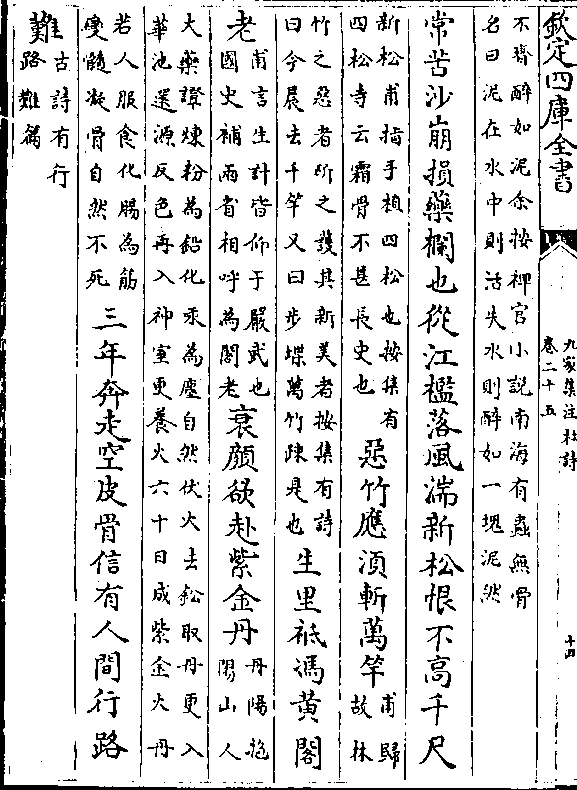 欽定四庫全書
九家集注杜詩
卷二十五
十四
不齊醉如泥余按稗官小說南海有蟲無骨
名曰泥在水中則活失水則醉如一塊泥然
常苦沙崩損藥欄也從江檻落風湍新松恨不高千尺
新松甫指手植四松也按集有
四松寺云霜骨不甚長史也
惡竹應湏斬萬竿
甫歸
故林
竹之惡者所之護其新美者按集有詩
曰今晨去千竿又曰步堞萬竹疎是也
生里祗馮黃閣
老
甫言生計皆仰于嚴武也
國史補兩省相呼為閣老
衰顔欲赴紫金丹
丹陽抱
陽山人
大藥證煉粉為鉛化汞為塵自然伏火去鈆取丹更入
華池還源反色再入神室更養火六十日成紫金火丹
若人服食化腸為筋
變髓凝骨自然不死
三年奔走空皮骨信有人間行路
難
古詩有行
路難篇